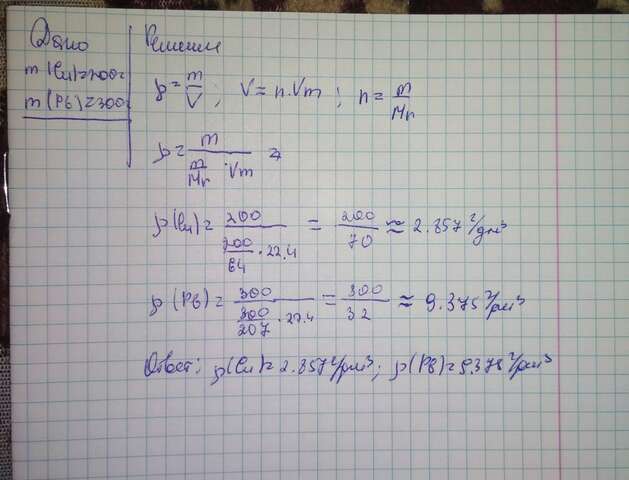 Дано
m(Cu)=200г
m(Pb)=300г
Решение
ρ=m/V; V=n·Vm; n=m/Mr
ρ=m/(m/Mr·Vm) =
ρ(Cu)=200/(200/64·22.4) = 200/70 ≈ 2.857 г/дм³
ρ(Pb)=300/(300/207·22.4) = 300/32 ≈ 9.375 г/дм³
Ответ: ρ(Cu)=2.857 г/дм³; ρ(Pb)=9.375 г/дм³